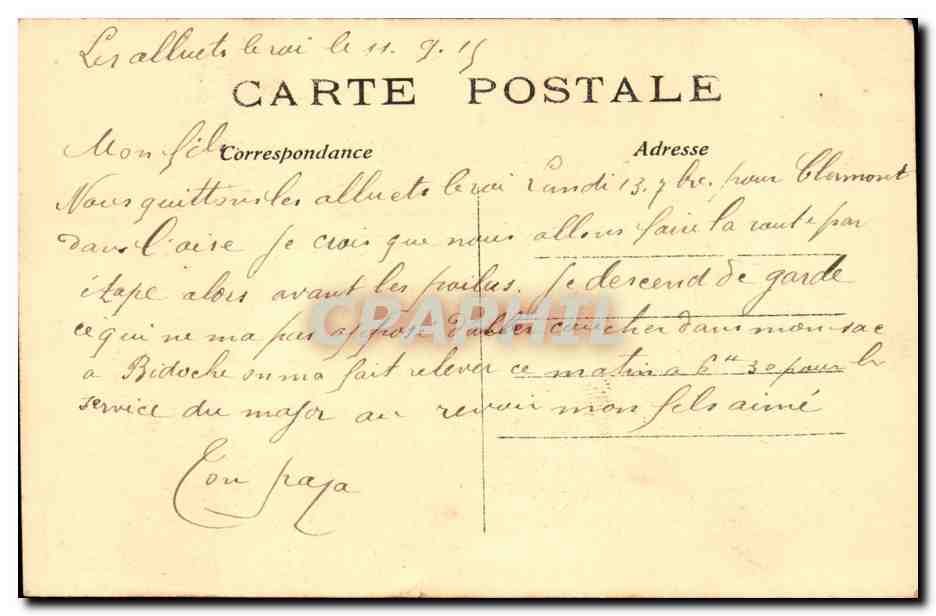 Les alluets le roi le 11. 9. 15
CARTE POSTALE
Mon fils
Correspondance
Adresse
Nous quittons les alluets le roi Lundi 13. 7bre. pour Clermont
dans l'oise Je crois que nous allons faire la route par
étape alors avant les poilus. Je descend de garde
ce qui ne ma pas oposé d'aller coucher dans mon sac
a Bidoche on ma fait relever ce matin a 6 30 pour le
service du major au revoir mon fils aimé
Ton papa
CPAPHIL